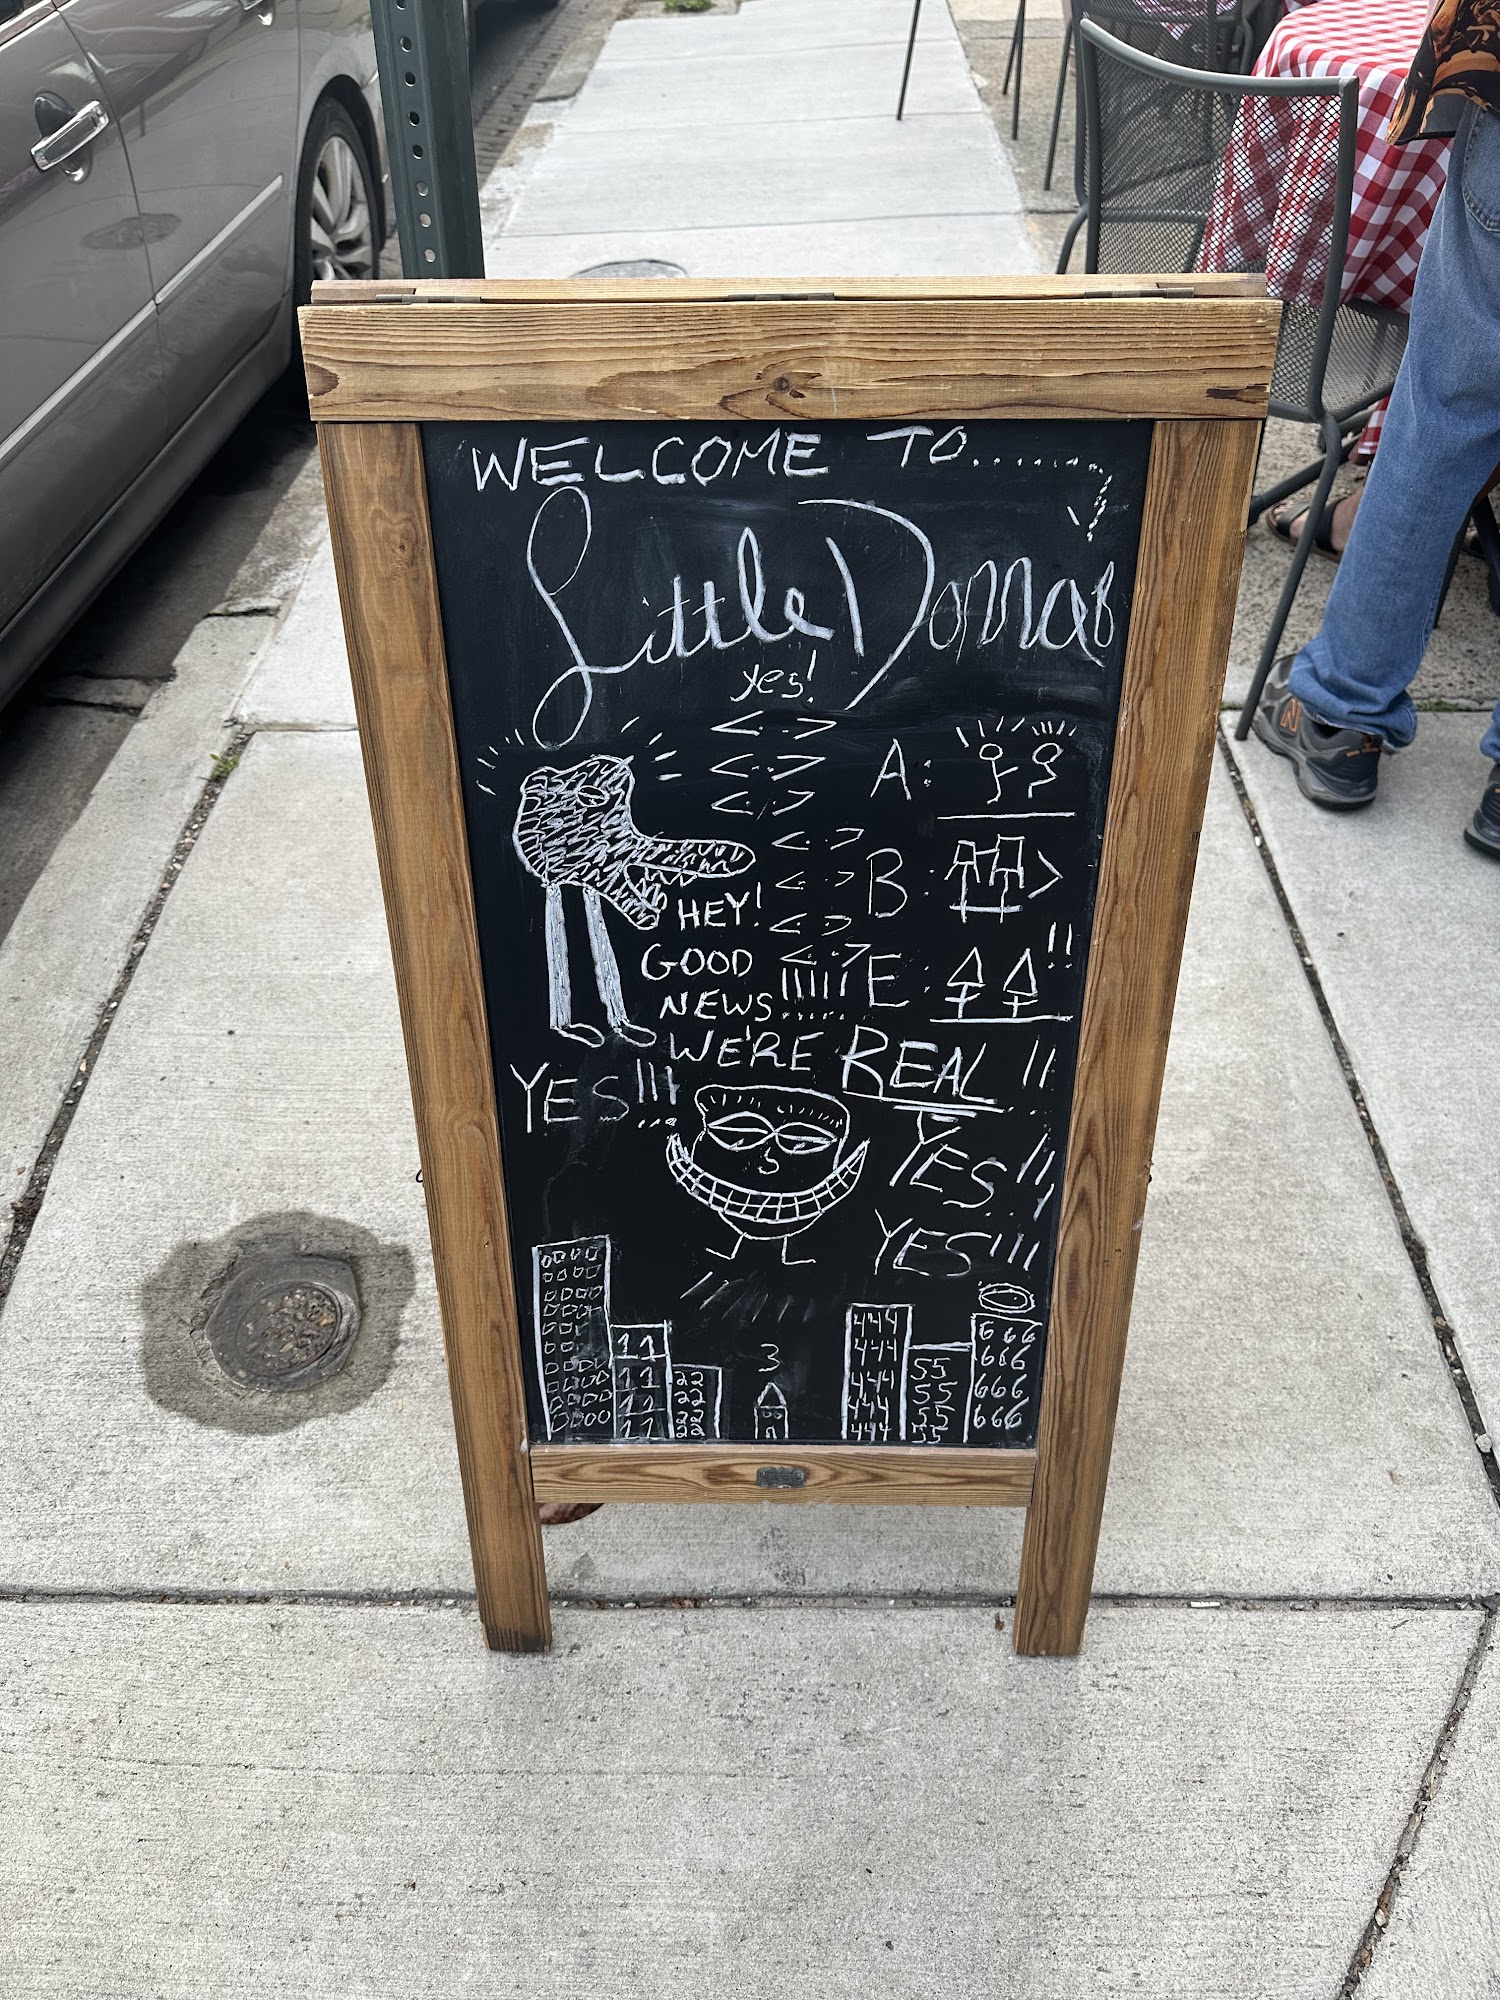 WELCOME TO........
Little Donna's
yes!
<..>
<..>
<..>
<..>
<..>
<..>
<..>
A:
B:
E:
!!
HEY!
GOOD
NEWS!!!!!!
WE'RE REAL!!
YES!!!
YES!!!
YES!!!
11
11
11
11
22
22
22
22
3
444
444
444
444
444
55
55
55
55
666
666
666
666
N